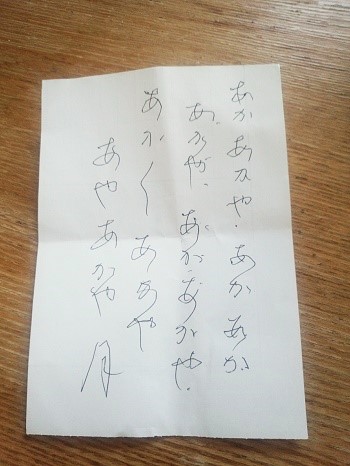 あかあかや・あかあか
あかや、あかあかや・
あか〱あかや
あかあかや月